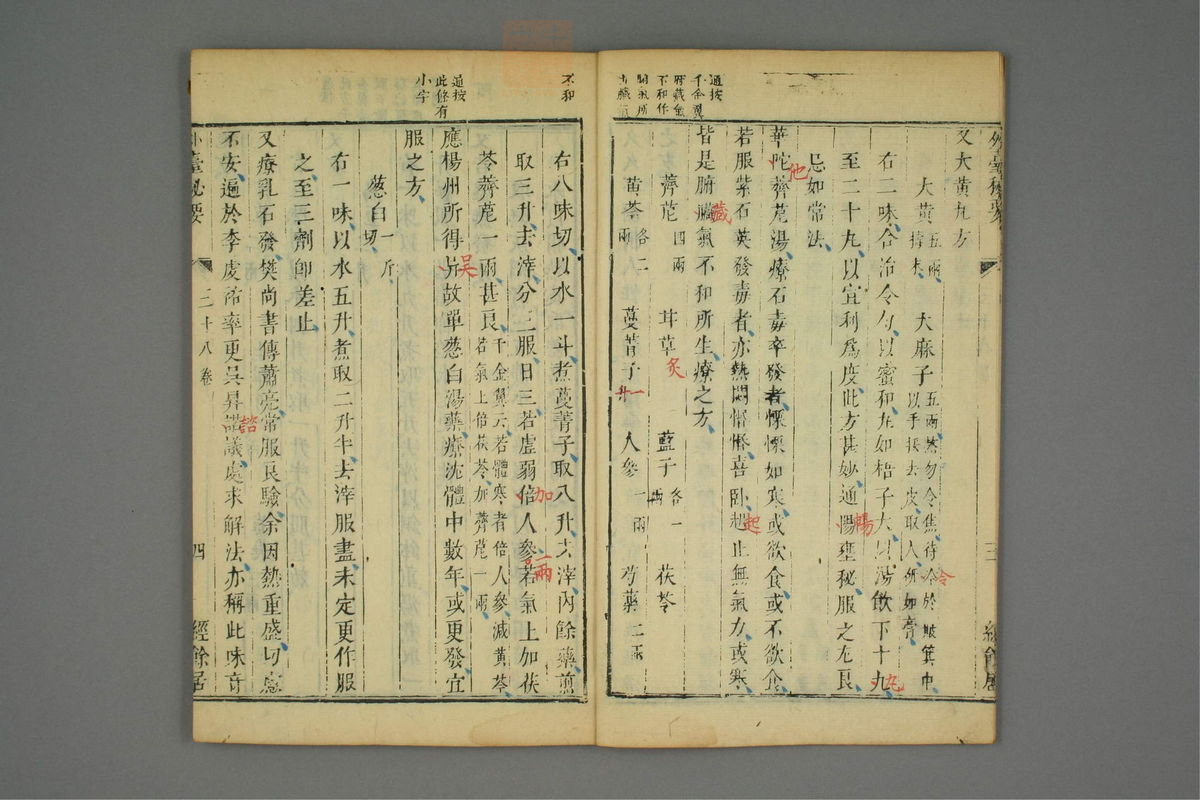 外臺秘要
又大黃丸方
大黃五兩擣末 大麻子五兩蒸勿令焦待冷於簸箕中以手挼去皮取人研如膏
右二味合治令勻以蜜和丸如梧子大以湯飲下十九丸
至二十丸以宜利為度此方甚妙通腸暢壅秘服之尤良
忌如常法
華陀他薺苨湯療石毒卒發者慄慄如寒或欲食或不欲食
若服紫石英發毒者亦熱悶惛惛喜臥起止無氣力或寒
皆是腑臟藏氣不和所生療之方
薺苨四兩 甘草炙 藍子各一兩 茯苓
黃芩各二兩 蔓菁子一升 人參一兩 芍藥二兩
三
經餘居
適按
千金翼
腑藏金
不和作
不和
右八味切以水一斗煮蔓菁子取八升去滓內餘藥煎
取三升去滓分三服日三若虛弱倍加人參一兩若氣上加茯
苓薺苨一兩甚良千金翼云若體寒者倍人參減黃芩若氣上倍茯苓加薺苨一兩
應楊州所得片吳故單蔥白湯藥療沈體中數年或更發宜
服之方
蔥白切一斤
右一味以水五升煮取二升半去滓服盡未定更作服
之至三劑即差止
又療乳石發樊尚書傳蕭亮常服良驗余因熱重盛切慮
不安遍於李虔祐率更吳昇諮議處求解法亦稱此味奇
適按
此條有
小字
外臺秘要
三十八卷
四
經餘居